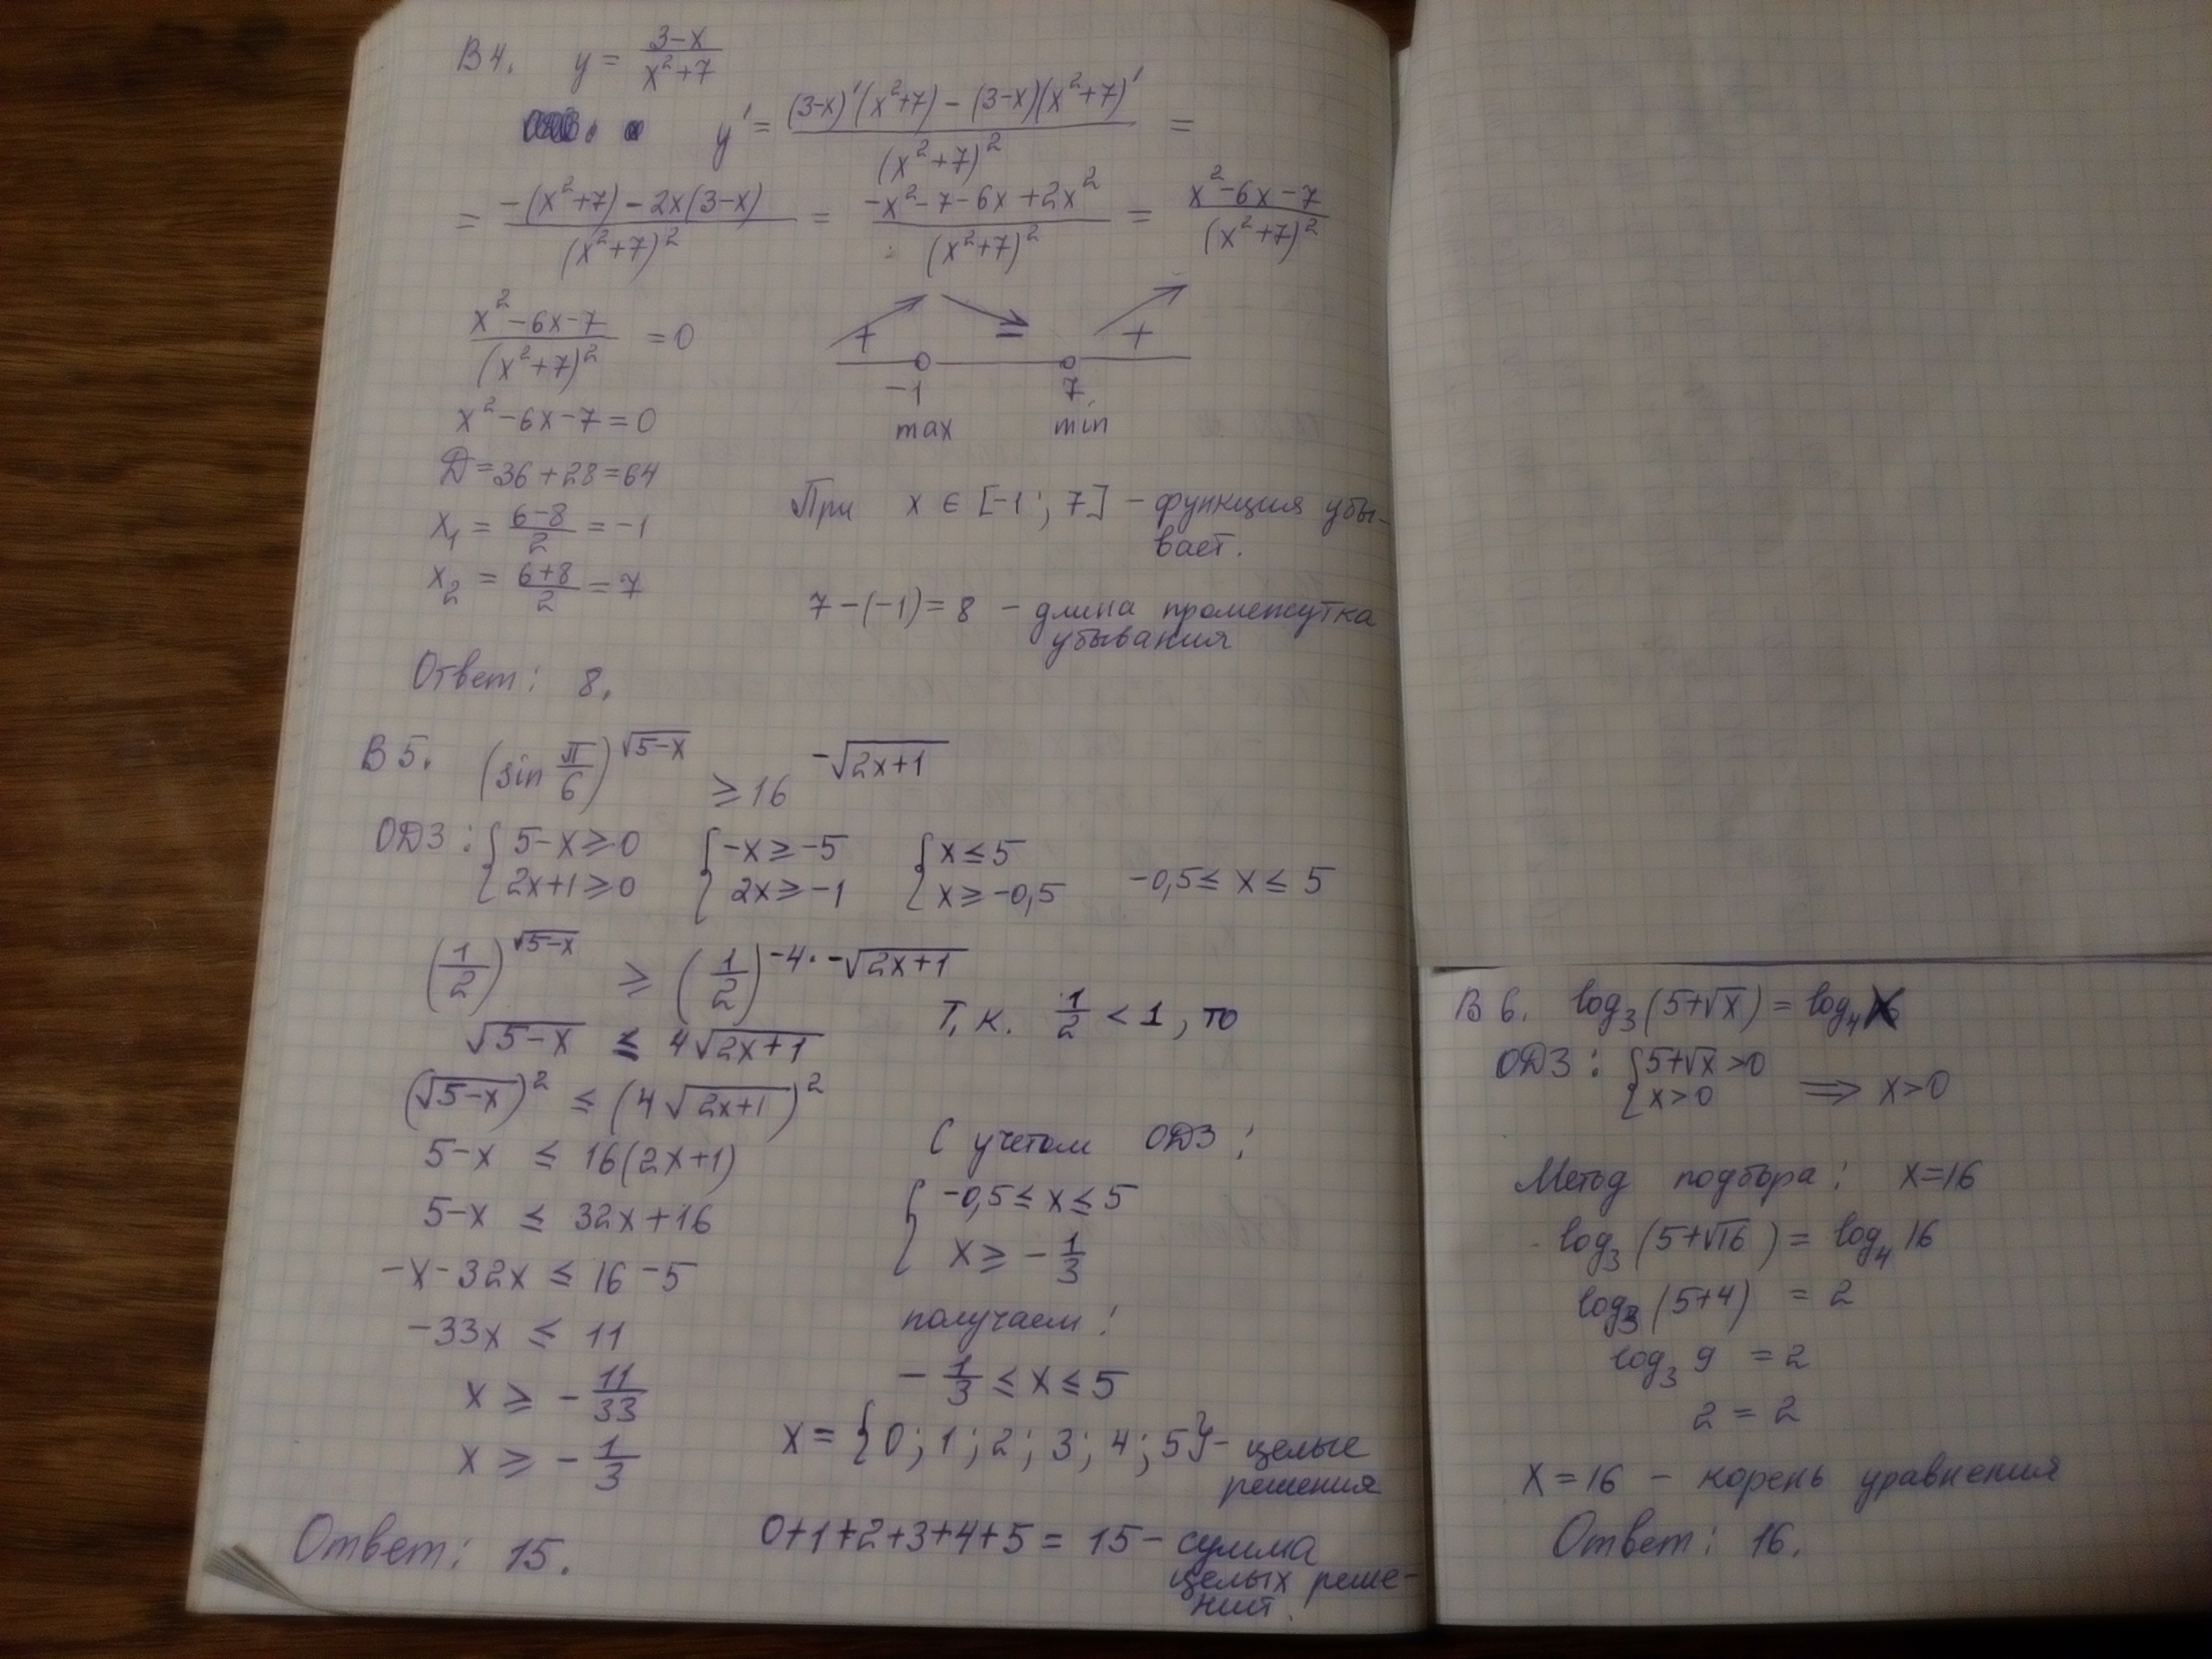 В4. y = (3-x)/(x²+7)
y' = ((3-x)'(x²+7) - (3-x)(x²+7)')/(x²+7)² =
= (-(x²+7) - 2x(3-x))/(x²+7)² = (-x²-7-6x+2x²)/(x²+7)² = (x²-6x-7)/(x²+7)²
(x²-6x-7)/(x²+7)² = 0
x²-6x-7=0
Д=36+28=64
x₁ = (6-8)/2 = -1
x₂ = (6+8)/2 = 7
+ = +
-1 7
max min
При x ∈ [-1; 7] - функция убы-
вает.
7-(-1)=8 - длина промежутка
убывания
Ответ: 8.
В5. (sin π/6)^√(5-x) ≥ 16^(-√(2x+1))
ОДЗ: { 5-x≥0 { -x≥-5 { x≤5
2x+1≥0 2x≥-1 x≥-0,5 -0,5≤ x ≤ 5
(1/2)^√(5-x) ≥ (1/2)^(-4·-√(2x+1))
Т.к. 1/2 < 1, то
√(5-x) ≤ 4√(2x+1)
(√(5-x))² ≤ (4√(2x+1))²
5-x ≤ 16(2x+1)
5-x ≤ 32x+16
-x-32x ≤ 16-5
-33x ≤ 11
x ≥ -11/33
x ≥ -1/3
С учетом ОДЗ:
{ -0,5≤x≤5
x ≥ -1/3
получаем:
-1/3 ≤ x ≤ 5
x = {0; 1; 2; 3; 4; 5} - целые
решения
0+1+2+3+4+5 = 15 - сумма
целых реше-
ний.
Ответ: 15.
В6. log₃(5+√x) = log₄x
ОДЗ: { 5+√x>0
x>0 ⟹ x>0
Метод подбора: x=16
log₃(5+√16) = log₄16
log₃(5+4) = 2
log₃9 = 2
2 = 2
x=16 - корень уравнения
Ответ: 16.